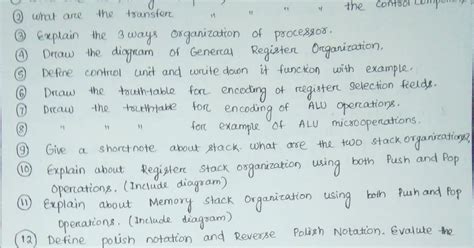 the control
② What are the transfer " " "
③ Explain the 3 ways Organization of processor.
④ Draw the diagram of General Register Organization.
⑤ Define control unit and write down it function with example.
⑥ Draw the truthtable for encoding of register selection fields.
⑦ Draw the truthtable for encoding of ALU operations.
⑧ " " for example of ALU microoperations.
⑨ Give a shortnote about stack. What are the two stack organizations?
⑩ Explain about Register Stack organization using both Push and Pop
Operations. (Include diagram)
⑪ Explain about Memory Stack Organization using both Push and Pop
Operations. (Include diagram)
⑫ Define polish notation and Reverse Polish Notation. Evaluate the